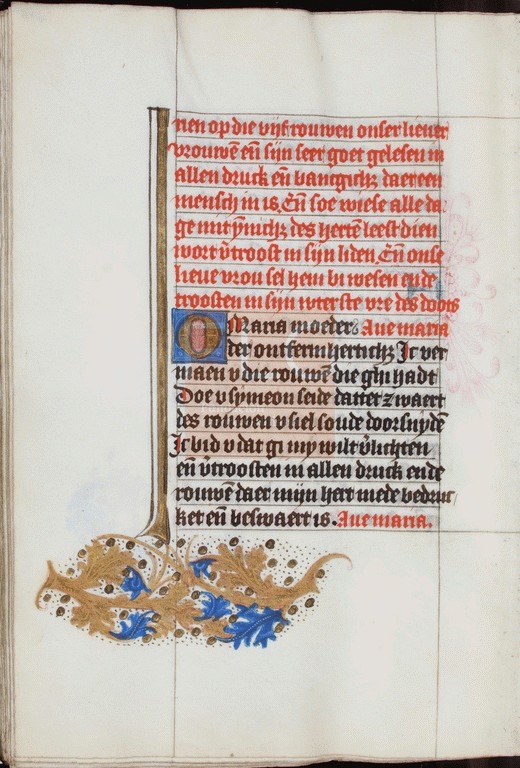 nen op die vijf rouwen onser lieuer
vrouwē eñ sijn seer goet gelesen in
allen druck eñ bangichz daer een
mensch in is Eñ soe wiese alle da
ge mit ynichz des hertē leest dien
wort v̄troost in sijn liden Eñ onse
lieue vrou sel hem bi wesen ende
troosten in sijn wterste vre des doots
O Maria moeder Aue maria
der ontfermhertichz Ic ver
maen v die rouwē die ghi hadt
Doe v symeon seide dattet zwaert
des rouwen v siel soude doorsnydē
Ic bid v dat gi my wilt v̄lichten
eñ v̄troosten in allen druck ende
rouwē daer mijn hert mede bedruc
ket eñ beswaert is. Aue maria.